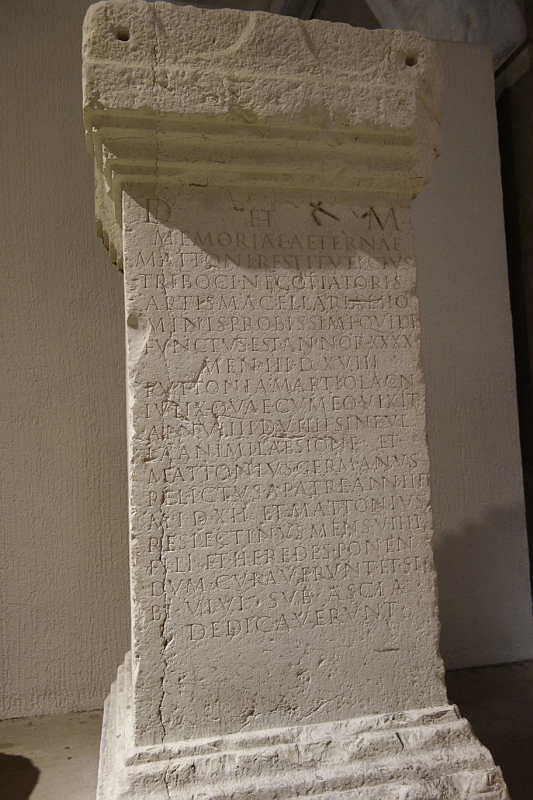 D ET M
MEMORIAE AETERNAE
MATTONI RESTITVTI CIVIS
TRIBOCI NEGOTIATORIS
ARTIS MACELLARIAE HO
MINIS PROBISSIMI QVI DE
FVNCTVS EST ANNOR XXXX
MEN III D XVIII
RVTTONIA MARTIOLA CN
IVNX QVAE CVM EO VIXIT
ANN VIIII D VIIII SINE VL
LA ANIMI LAESIONE ET
MATTONIVS GERMANVS
RELICTVS A PATRE ANN III
M I D XII ET MATTONIVS
RESPECTINVS MENS VIIII
FILI ET HEREDES PONEN
DVM CVRAVERVNT ET SI
BI VIVI SVB ASCIA
DEDICAVERVNT